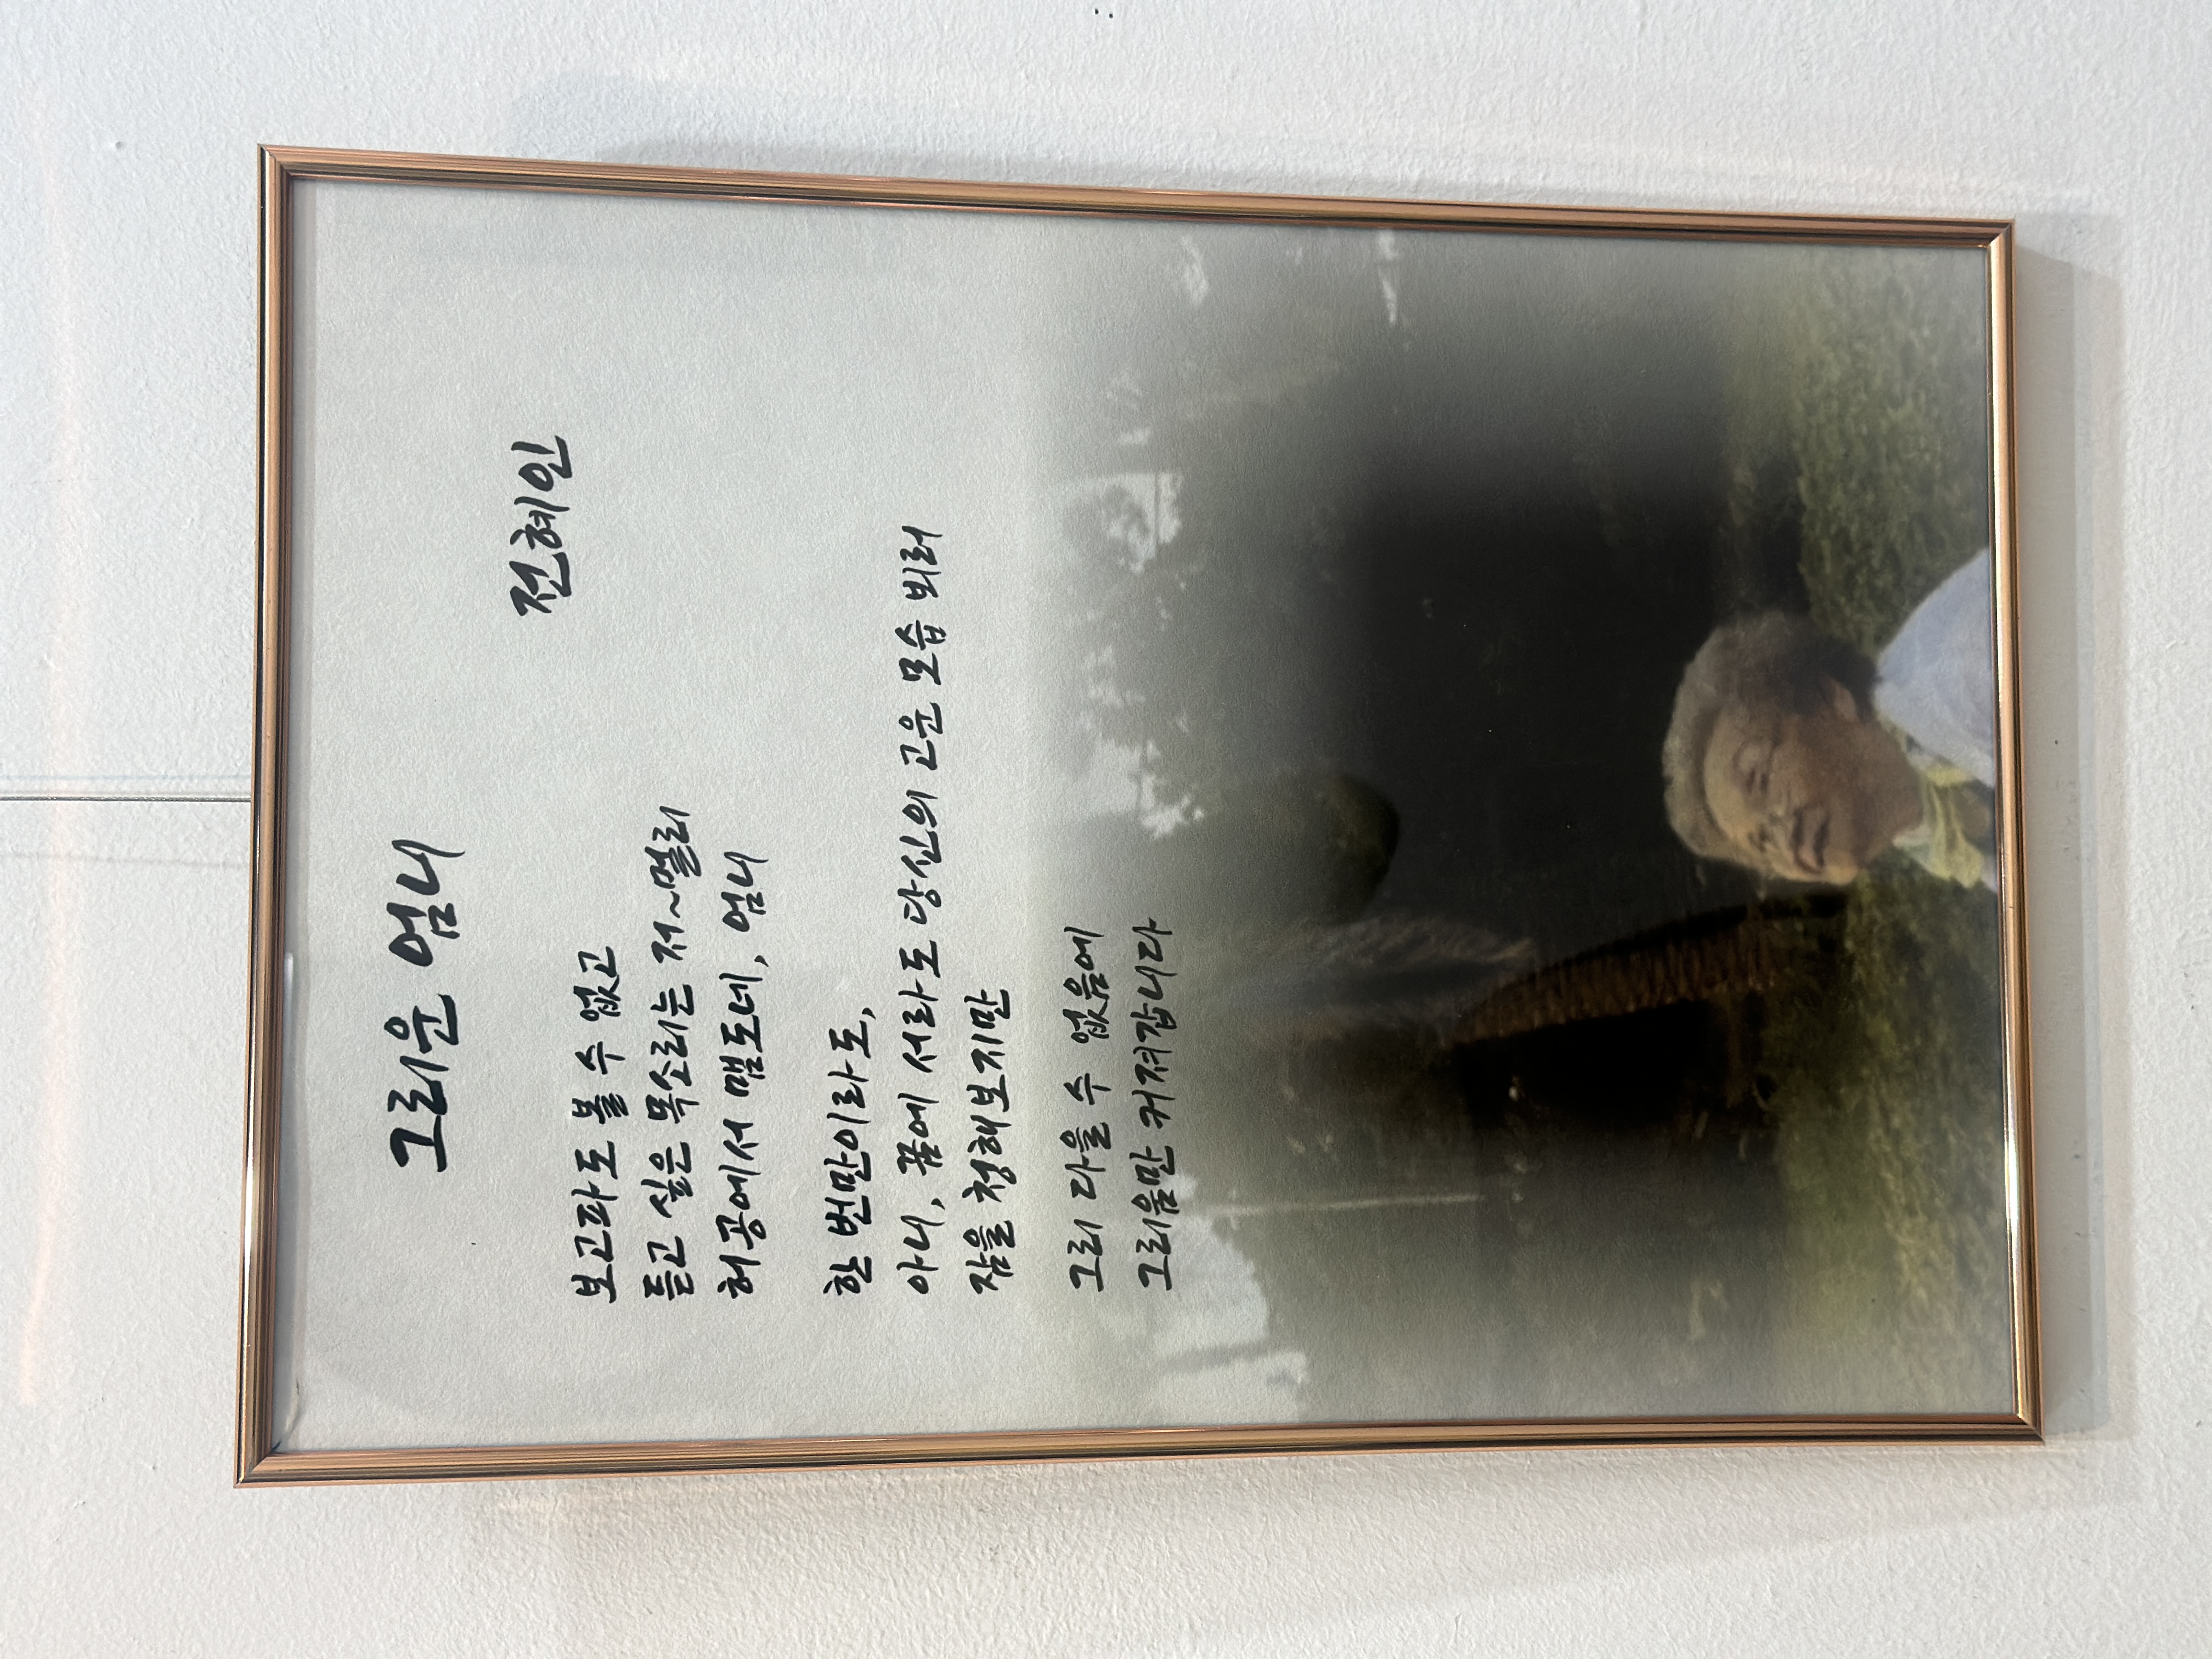 그리운 엄니
전혜인
보고파도 볼 수 없고
듣고 싶은 목소리는 저~멀리
허공에서 맴도네, 엄니
한 번만이라도,
아니, 꿈에서라도 당신의 고운 모습 뵈러
잠을 청해보지만
그리 다을 수 없음에
그리움만 커져갑니다